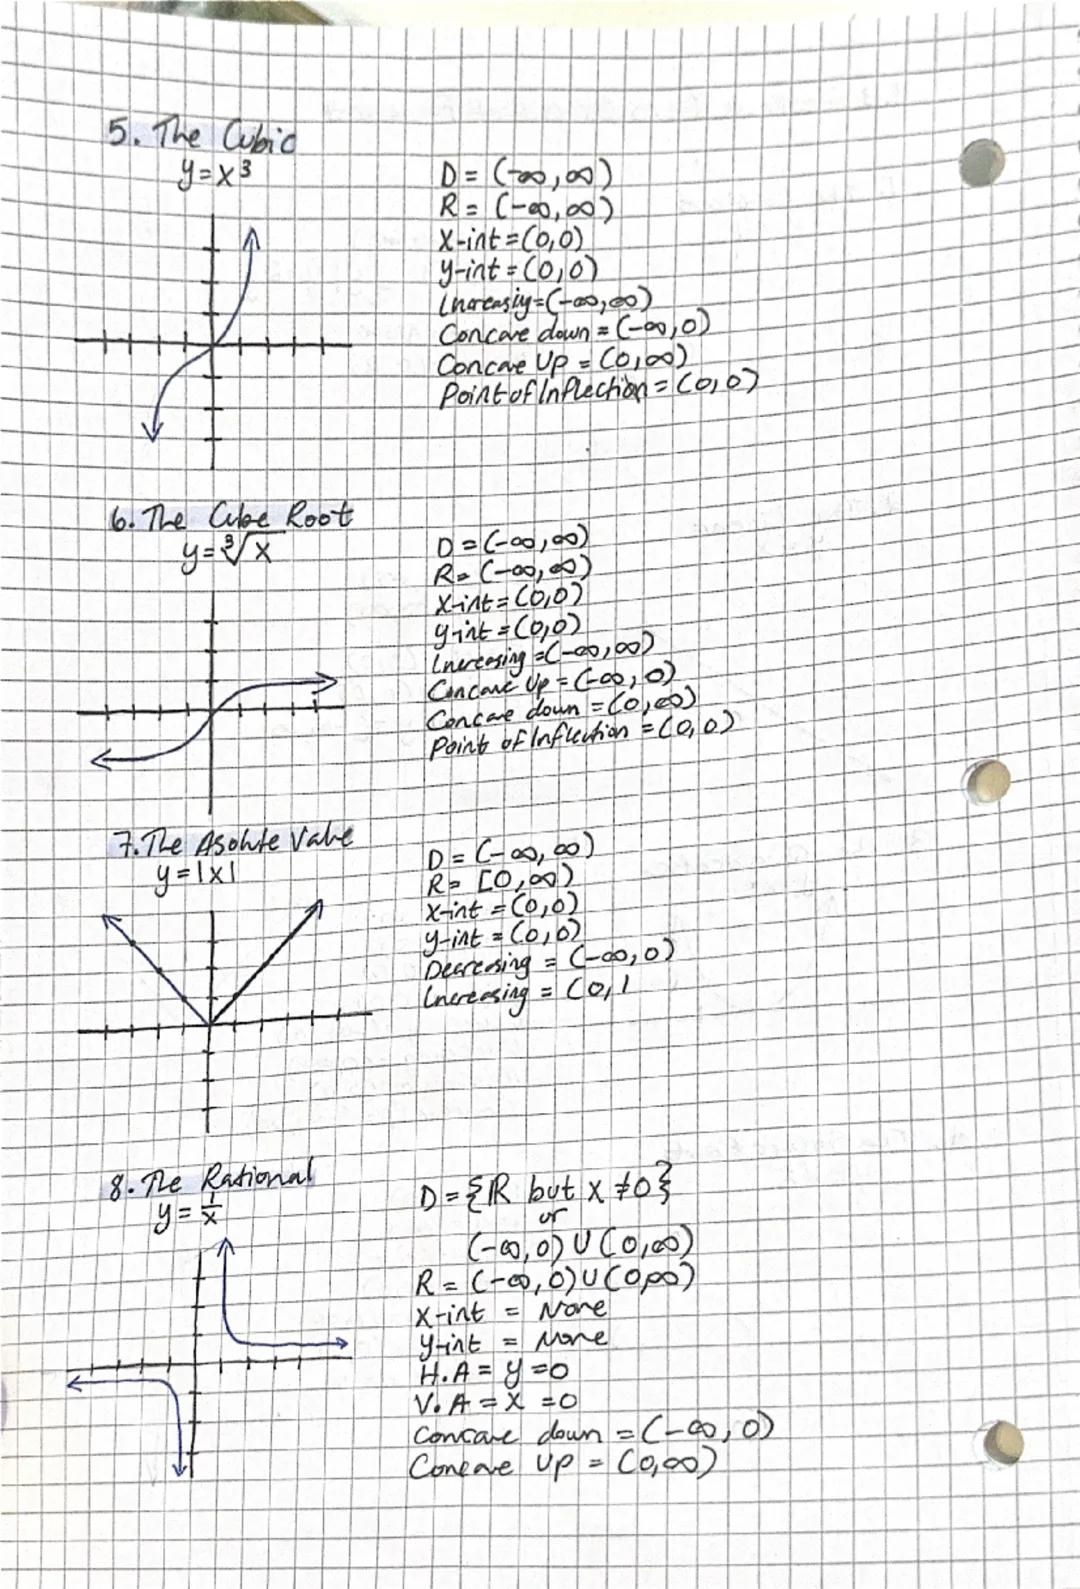 5. The Cubic
y=x³
D = (-∞,∞)
R = (-∞,∞)
X-int=(0,0)
y-int=(0,0)
Increasiy=(-∞,∞)
Concave down = (-∞,0)
Concave Up = (0,∞)
Point of Inflection = (0,0)
6. The Cube Root
y=∛x
D = (-∞,∞)
R = (-∞,∞)
X-int=(0,0)
y-int=(0,0)
Increasing =(-∞,∞)
Concave Up = (-∞,0)
Concave down = (0,∞)
Point of Inflection = (0,0)
7. The Asolute Value
y=|x|
D = (-∞,∞)
R = [0,∞)
X-int = (0,0)
y-int = (0,0)
Decreasing = (-∞,0)
Increasing = (0,1
8. The Rational
y=1/x
D={ℝ but x ≠0}
or
(-∞,0) U (0,∞)
R = (-∞,0)U(0,∞)
X-int = None
y-int = None
H.A = y =0
V.A = X =0
Concave down = (-∞,0)
Concave up = (0,∞)